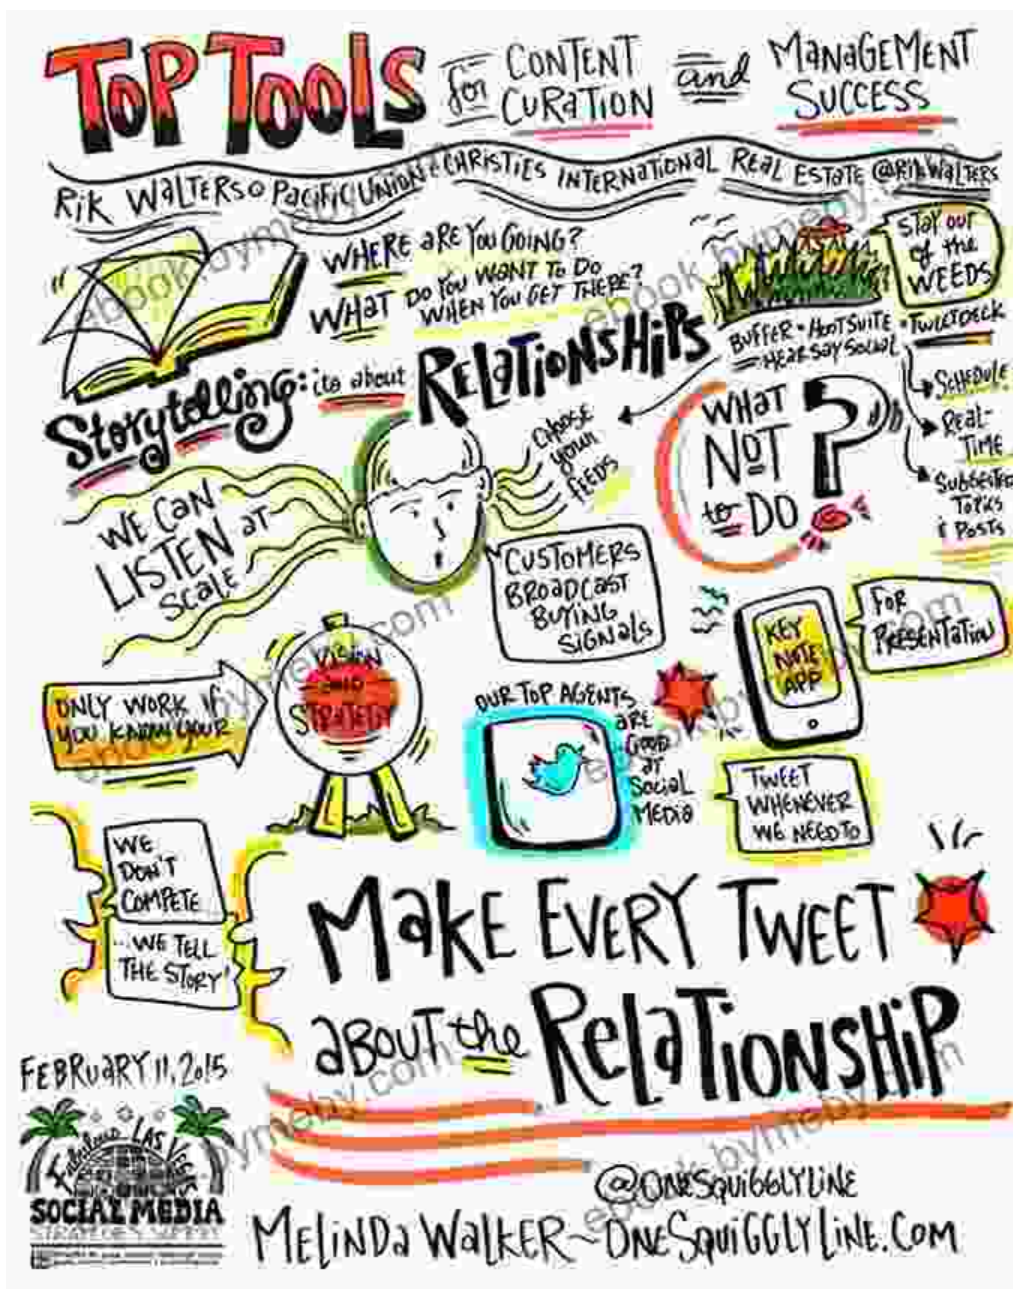 TOP TOOLS
for CONTENT CURATION
and
MANAGEMENT SUCCESS
RIK WALTERS @ PACIFIC UNION & CHRISTIES INTERNATIONAL REAL ESTATE @RIKWALTERS
WHERE ARE YOU GOING?
WHAT DO YOU WANT TO DO
WHEN YOU GET THERE?
STAY OUT
of the
WEEDS
BUFFER • HOOTSUITE • TWEETDECK
HEARSAY SOCIAL
SCHEDULE
REAL-
TIME
SUGGESTED
TOPICS
& POSTS
Storytelling: its about RELATIONSHIPS
CHOOSE
your
FEEDS
WHAT
NOT
to DO
?
WE CAN
LISTEN AT
SCALE
CUSTOMERS
BROADCAST
BUYING
SIGNALS
KEY
NOTE
APP
FOR
PRESENTATION
ONLY WORK IF
YOU KNOW YOUR
VISION
AND
STRATEGY
OUR TOP AGENTS
ARE
GOOD
AT
SOCIAL
MEDIA
TWEET
WHENEVER
WE NEED TO
WE
DON'T
COMPETE
...WE TELL
THE STORY!
MAKE EVERY TWEET
ABOUT the RELATIONSHIP
FEBRUARY 11, 2015
Fabulous LAS VEGAS
SOCIAL MEDIA
@ONESQUIGGLYLINE
MELINDA WALKER ~ ONESQUIGGLYLINE.COM
ebook.bymeby.com
ebook.bymeby.com
ebook.bymeby.com
ebook.bymeby.com
bymeby.com
ebook.bymeby.com